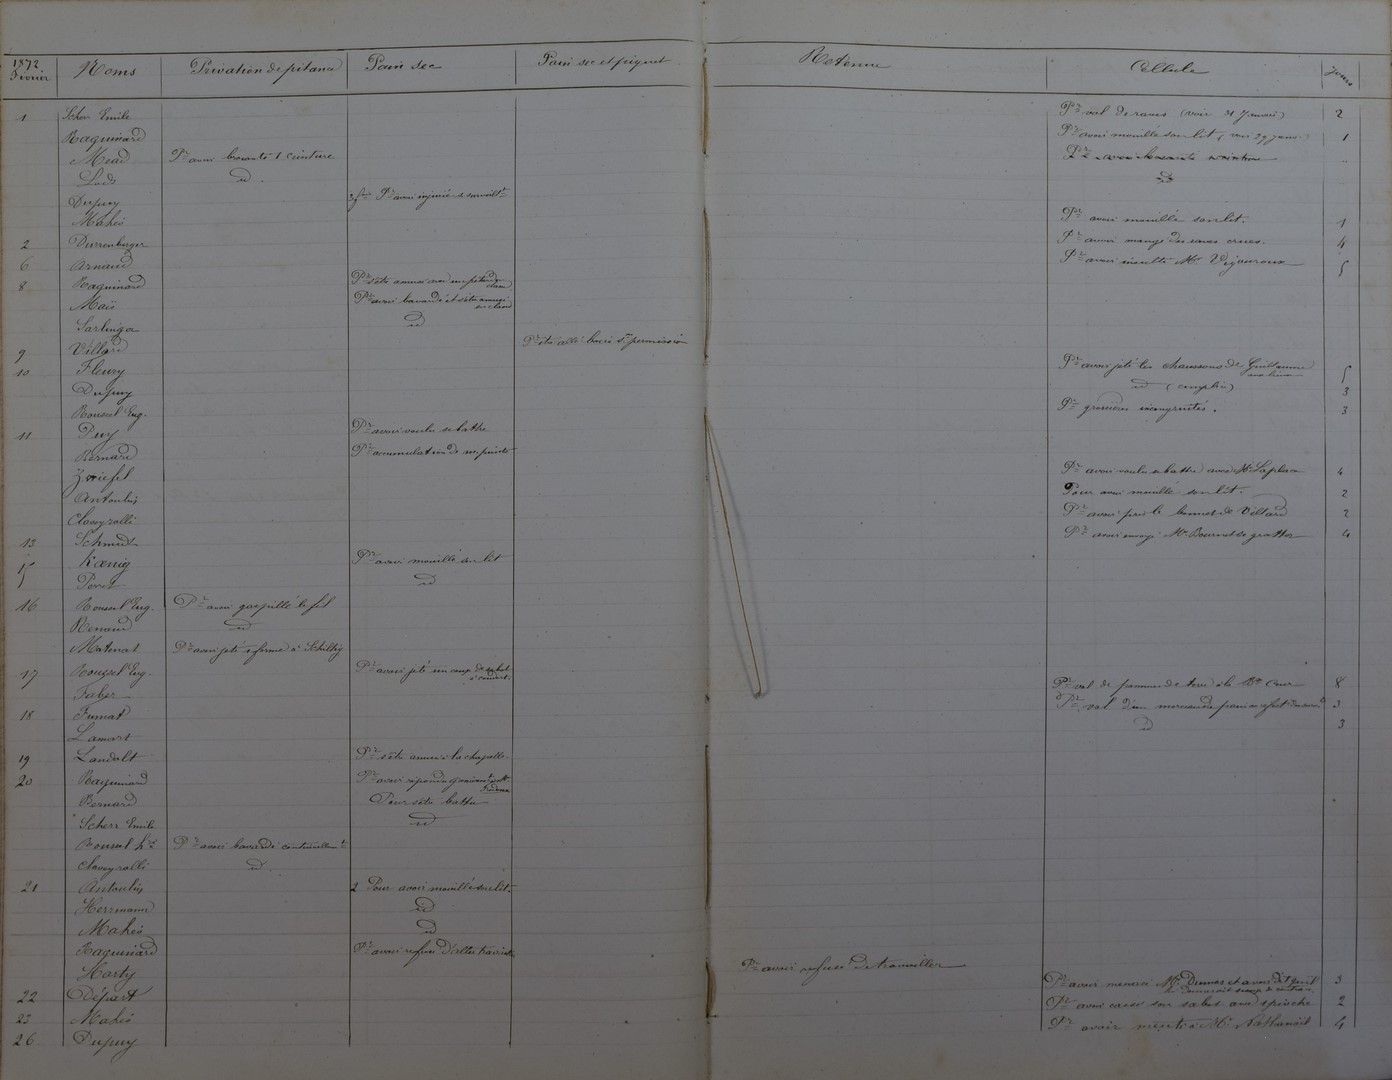 1872 Février Noms Privation de pitance Pain sec Pain sec et piquet Retenue Cellule Jours
1 Scherr Emile Pr vol de raves (voir 31 Janvier) 2
Raguinard Pr avoir mouillé son lit (voir 29 janv.) 1
Mead Pr avoir 1 ceinture
Lods id
Dupuy Pr avoir injurié le surveillt
Mahéo Pr avoir mouillé son lit. 1
2 Durrenberger Pr avoir mangé des raves crues. 4
6 Arnaud Pr avoir insulté Mr Vigouroux 5
8 Raguinard Pr s'être amusé avec un
Maïs Pr avoir bavardé et s'être amusé en classe
Sarlinger id
9 Villard Pr être allé boire s. permission
10 Fleury Pr avoir jeté les chaussons de Guillaume 5
Dupuy id (complice) 3
Roussel Eug. Pr grossières incongruités. 3
11 Puy Pr avoir voulu se battre
Bernard Pr accumulation de
Zoiefel Pr avoir voulu se battre avec Mr 4
Antoulin Pour avoir mouillé son lit. 2
Claveyrolli Pr avoir pris le bonnet de Villard 2
13 Schmidt Pr avoir envoyé Mr Bournet se gratter 4
15 Kœnig Pr avoir mouillé son lit
5 Perret id
16 Roussel Eug. Pr avoir gaspillé le fil
Renaud id
Maternat Pr avoir jeté à
17 Roussel Eug. Pr avoir jeté un coup de sabot
Faber Pr vol de pommes de terre à la Bse Cour 8
18 Fumat Pr vol d'un morceau de pain 3
Lamart id 3
19 Landolt Pr s'être amusé à la chapelle.
20 Raguinard Pr avoir répondu grossièrement
Bernard Pour s'être battu
Scherr Emile id
Roussel Pr avoir bavardé continuellemt
Claveyrolli id
21 Antoulin 2 Pour avoir mouillé son lit.
Herrmann id
Mahéo id
Raguinard Pr avoir refusé d'aller travailler
Harty Pr avoir refusé de travailler
22 Départ Pr avoir menacé Mr Dumas et avoir dit qu'il 3
23 Mahéo Pr avoir cassé son sabot avec pioche 2
26 Dupuy Pr avoir menti à Mr Nathanaël 4